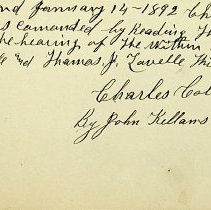 nd January 14-1892 Ch
s comanded by Reading th
he hearing of the Within
and Thomas J. Lavelle thi
Charles Col
By John Kellams